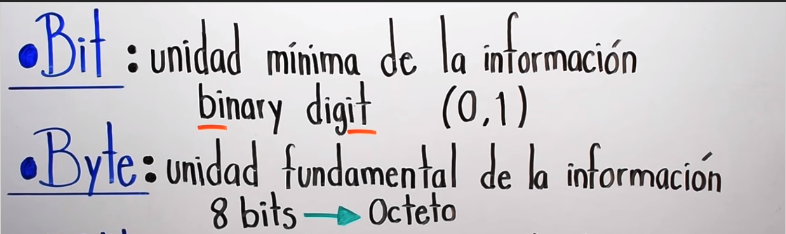 •Bit: unidad mínima de la información
binary digit (0,1)
•Byte: unidad fundamental de la información
8 bits → Octeto